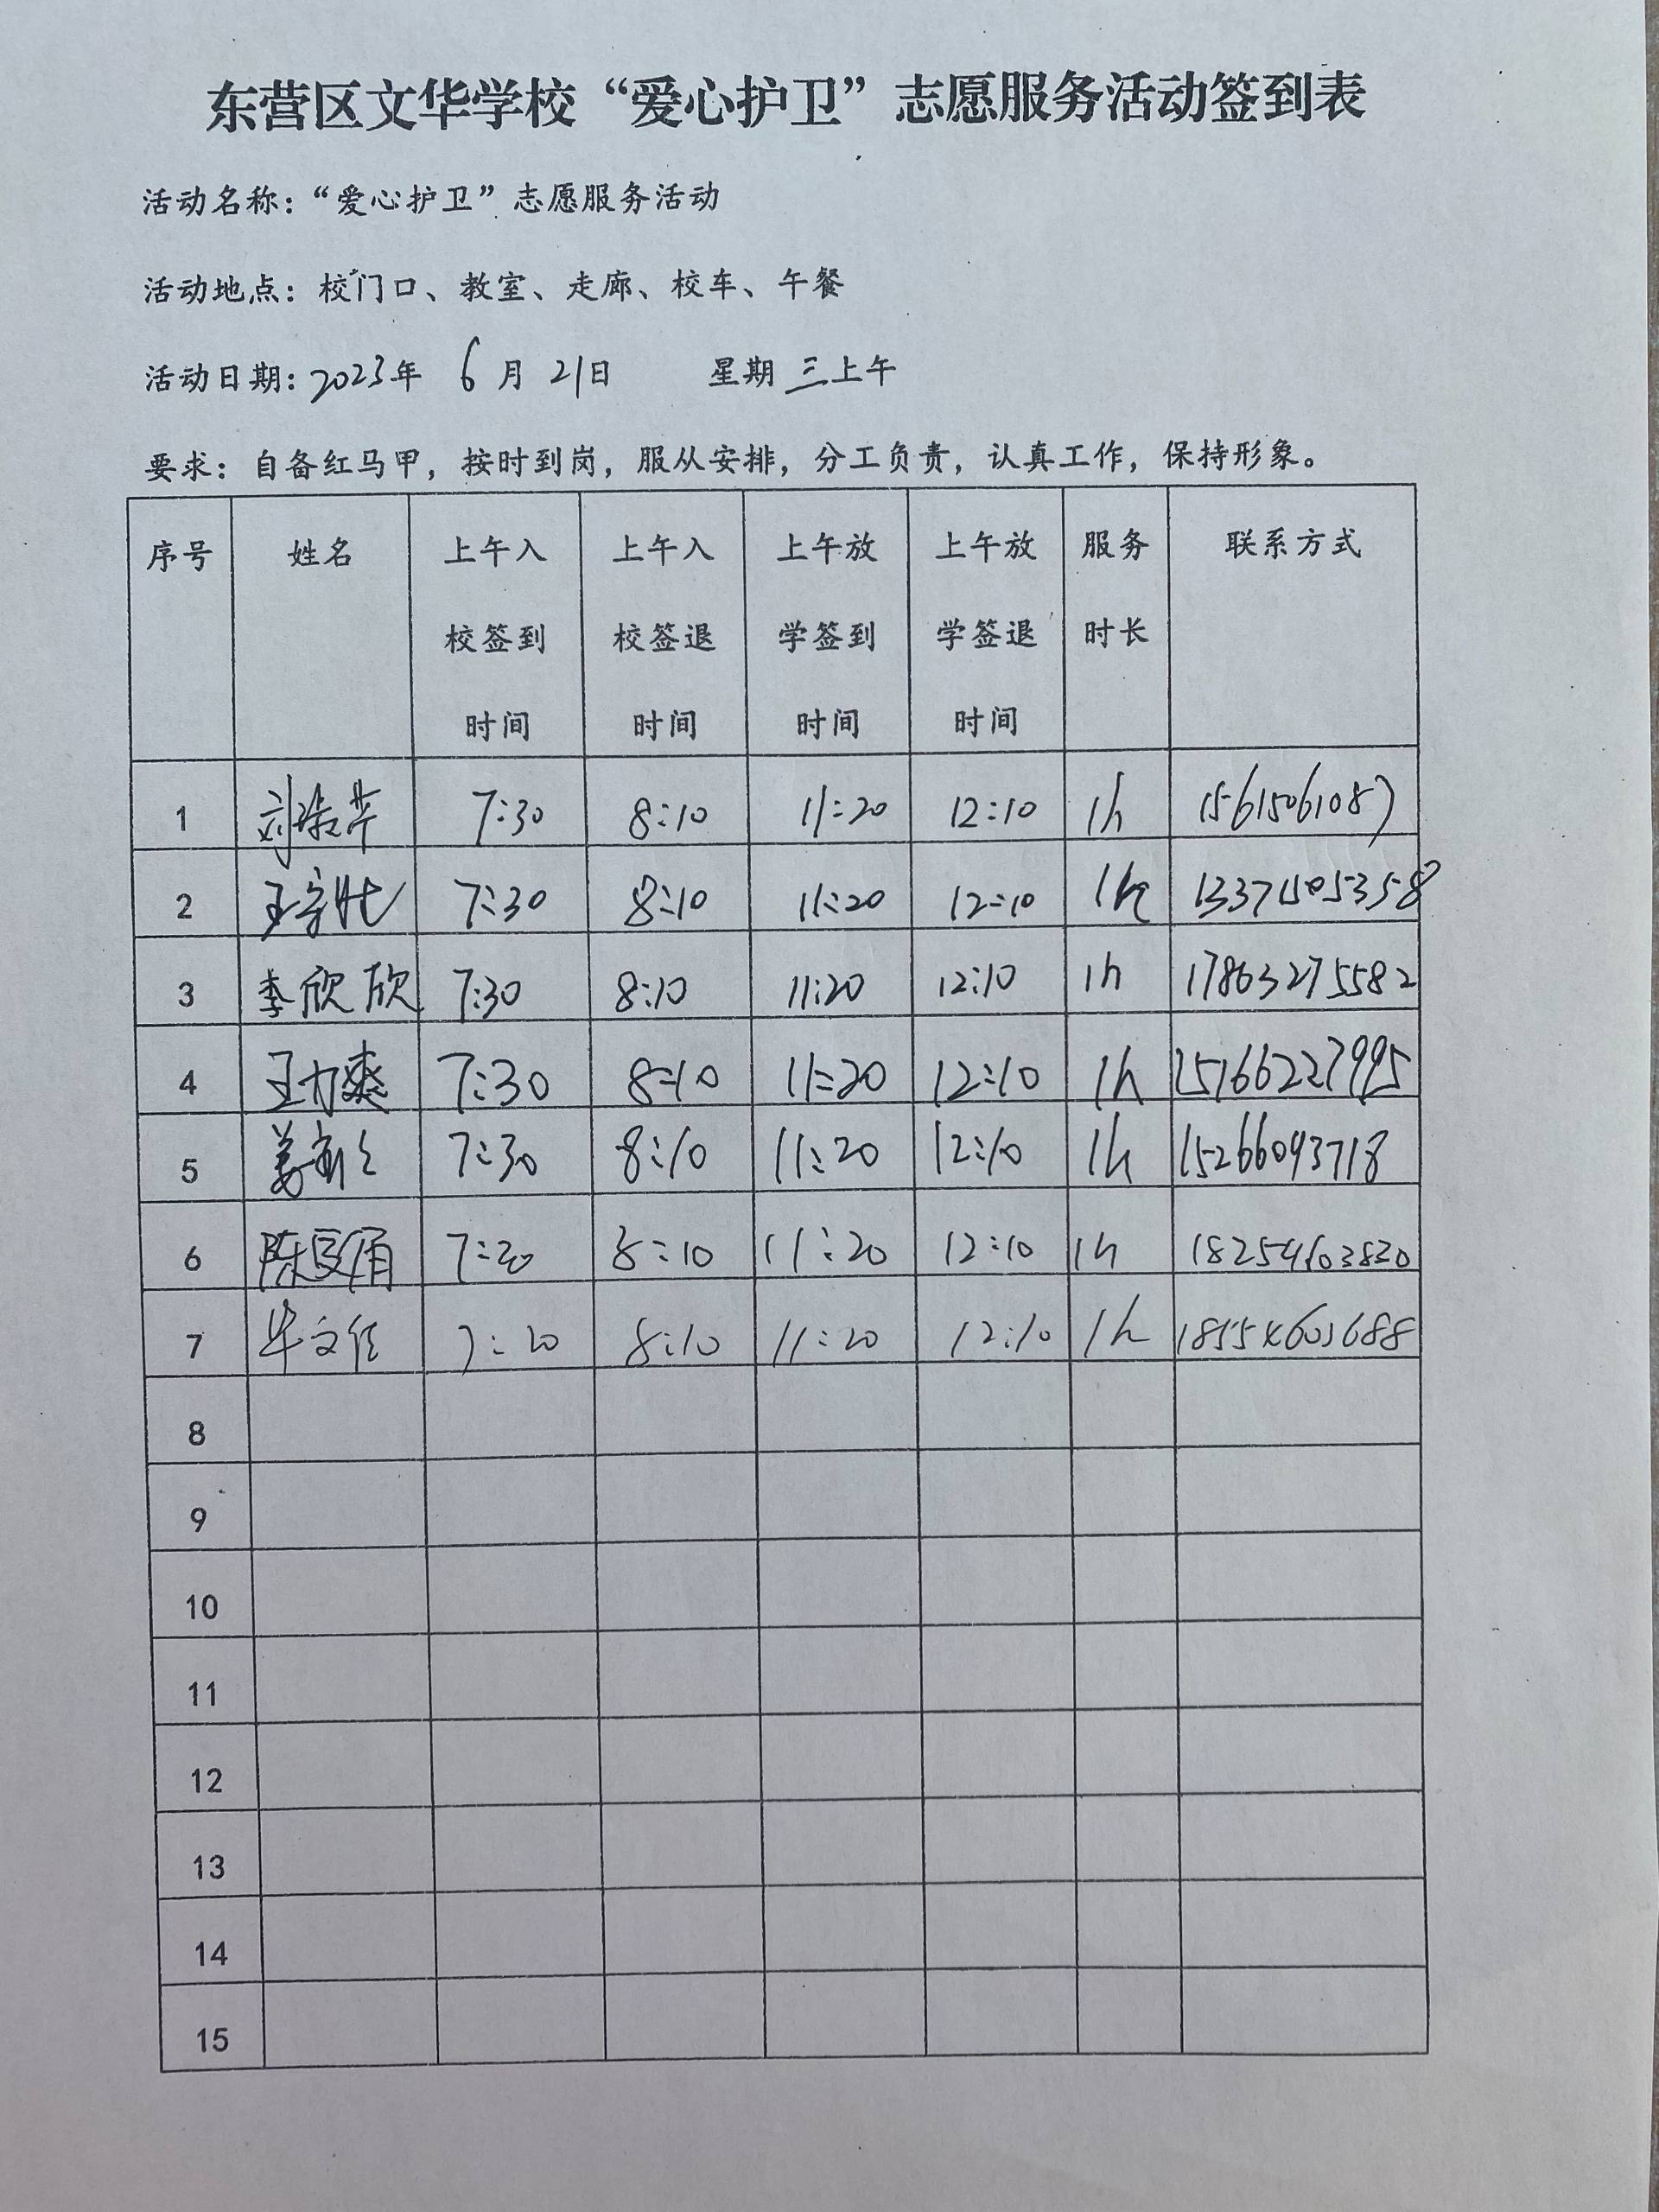 东营区文华学校“爱心护卫”志愿服务活动签到表
活动名称：“爱心护卫”志愿服务活动
活动地点：校门口、教室、走廊、校车、午餐
活动日期：2023年 6月 21日 星期三上午
要求：自备红马甲，按时到岗，服从安排，分工负责，认真工作，保持形象。
序号 姓名 上午入校签到时间 上午入校签退时间 上午放学签到时间 上午放学签退时间 服务时长 联系方式
1 7:30 8:10 11:20 12:10 1h 15615061087
2 7:30 8:10 11:20 12:10 13371505358
3 李欣欣 7:30 8:10 11:20 12:10 1h 17863275582
4 王力爽 7:30 8:10 11:20 12:10 1h 15166227995
5 7:30 8:10 11:20 12:10 1h 15266093718
6 8:10 11:20 12:10 1h
7 8:10 11:20 12:10 1h
8
9
10
11
12
13
14
15